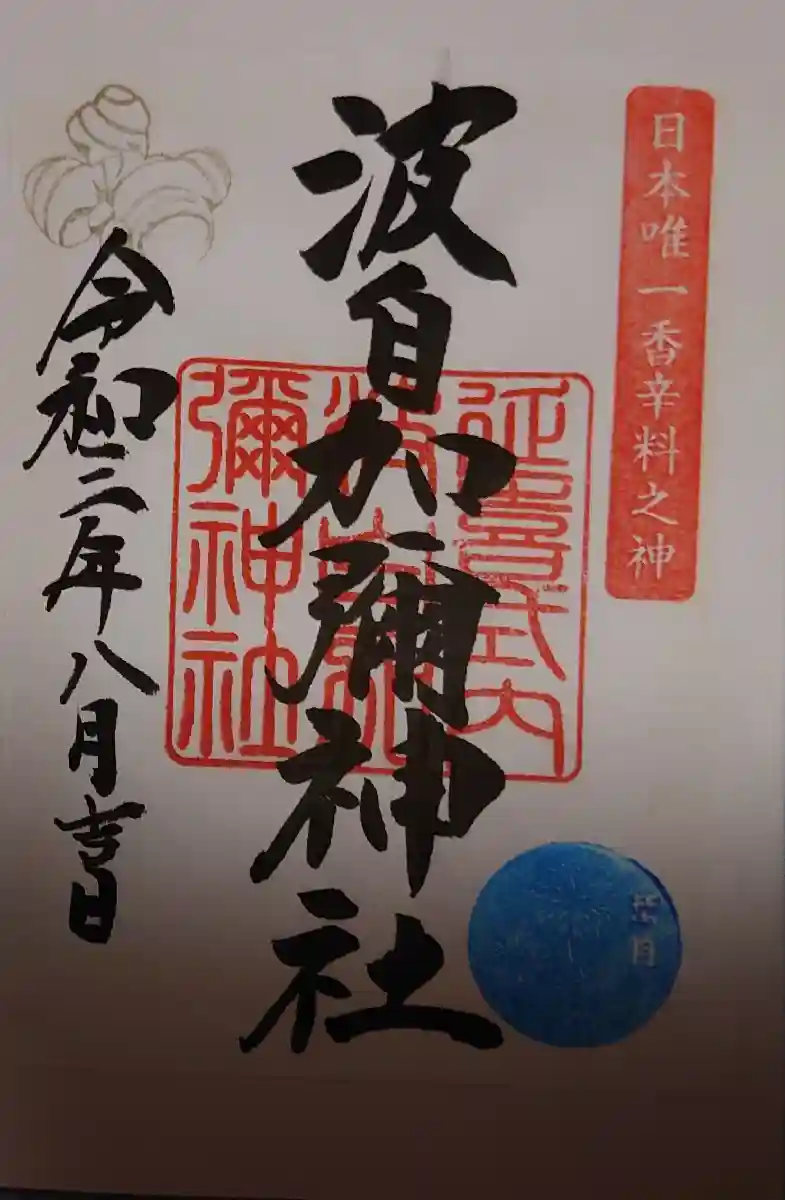 日本唯一香辛料之神
波自加彌神社
延喜式内
波自加
彌神社
令和二年八月吉日
葉月